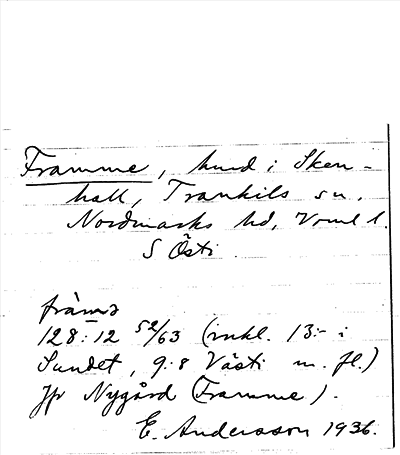 Framme, hmd i Sken-
hall, Trankils sn,
Nordmarks hd, Vrml l.
S Östi
framə
128:12 52/63 (inkl. 13:- i
Sundet, 9:8 Västi m. fl.)
Jfr Nygård (Framme).
E. Andersson 1936.